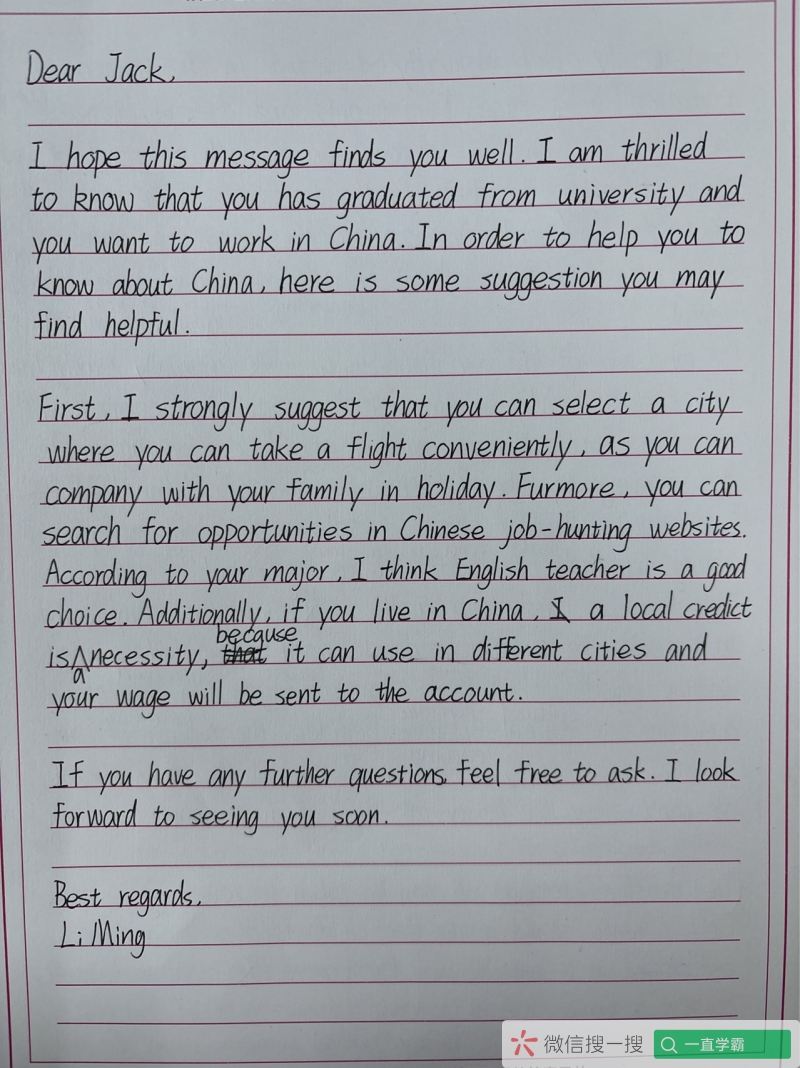 Dear Jack,
I hope this message finds you well. I am thrilled
to know that you has graduated from university and
you want to work in China. In order to help you to
know about China, here is some suggestion you may
find helpful.
First, I strongly suggest that you can select a city
where you can take a flight conveniently, as you can
company with your family in holiday. Furmore, you can
search for opportunities in Chinese job-hunting websites.
According to your major, I think English teacher is a good
choice. Additionally, if you live in China, a local credict
because
is a necessity, it can use in different cities and
your wage will be sent to the account.
If you have any further questions, feel free to ask. I look
forward to seeing you soon.
Best regards,
Li Ming
微信搜一搜
一直学霸